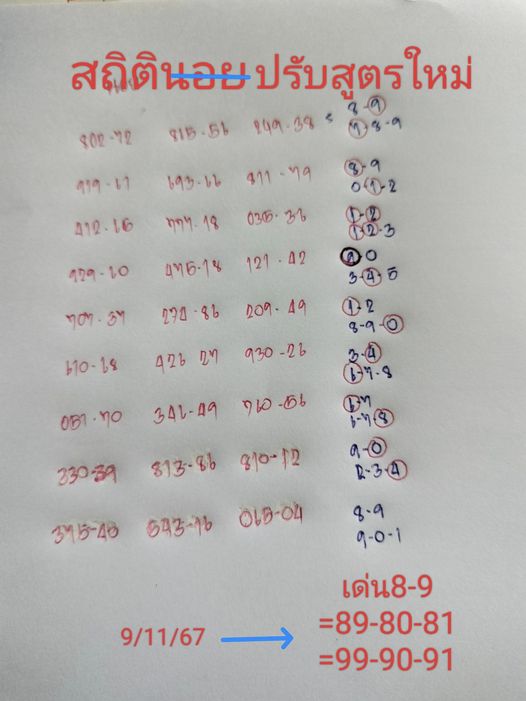 สถิตินอย ปรับสูตรใหม่
8-9
802-72 815-56 249-38 = 7-8-9
8-9
979-67 693-66 811-79 0-1-2
1-2
412-16 777-18 035-36 1-2-3
9-0
929-60 475-18 121-42 3-4-5
1-2
707-37 274-86 209-49 8-9-0
3-4
610-68 426-27 930-26 6-7-8
6-7
051-70 346-49 760-56 6-7-8
9-0
330-39 813-86 810-12 2-3-4
8-9
395-45 543-76 065-04 9-0-1
เด่น8-9
9/11/67 =89-80-81
=99-90-91